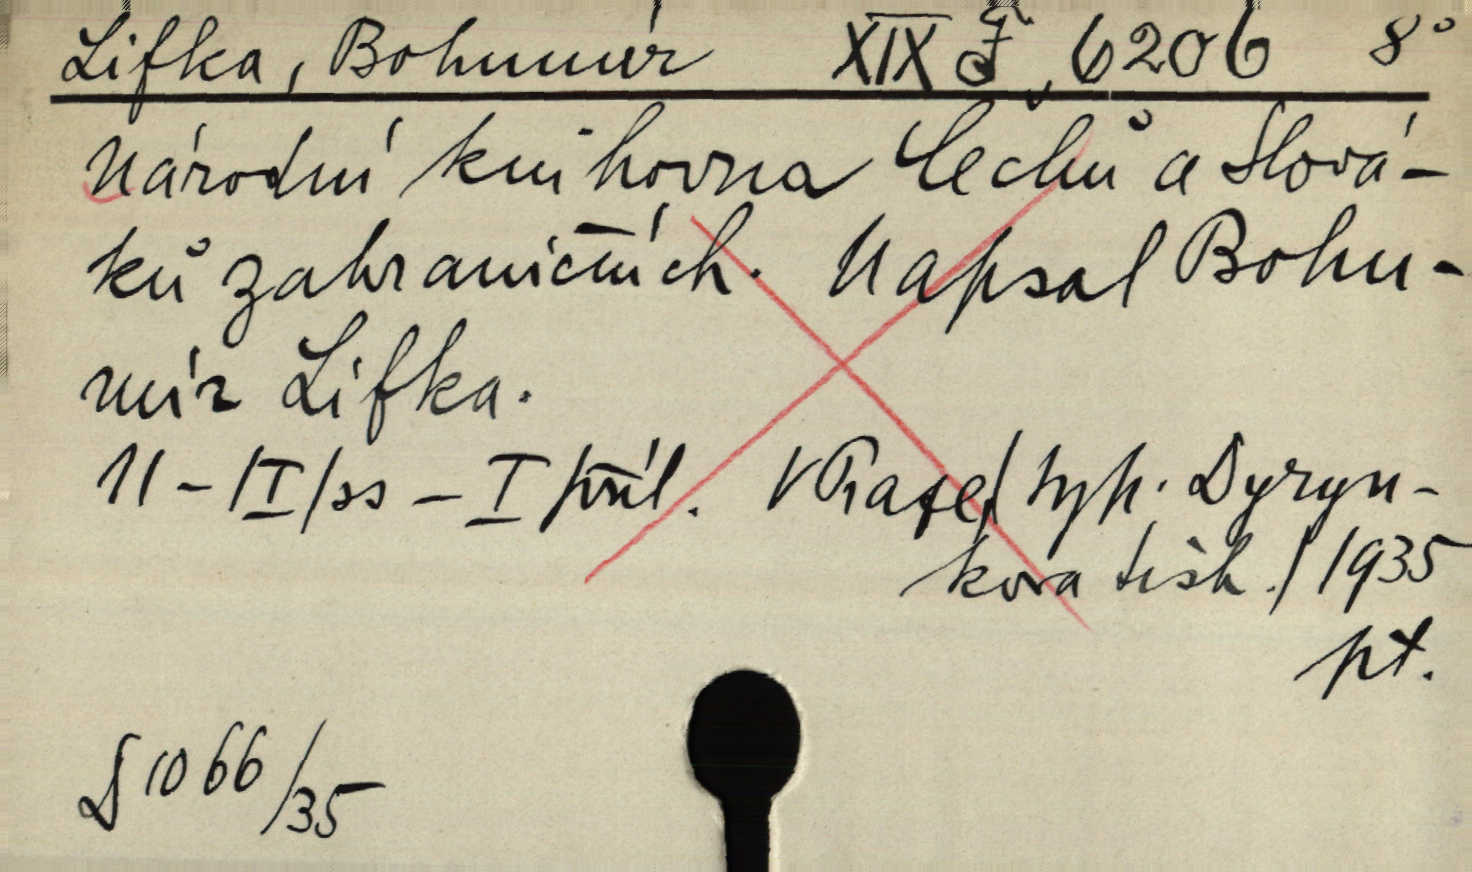 Lifka, Bohumír XIX F, 6206 8°
Národní knihovna Čechů a Slová-
ků zahraničních. Napsal Bohu-
mír Lifka.
11 - |I| ss - I příl. V Praze / typ. Dyryn-
kova tisk. / 1935
pt.
§ 1066/35